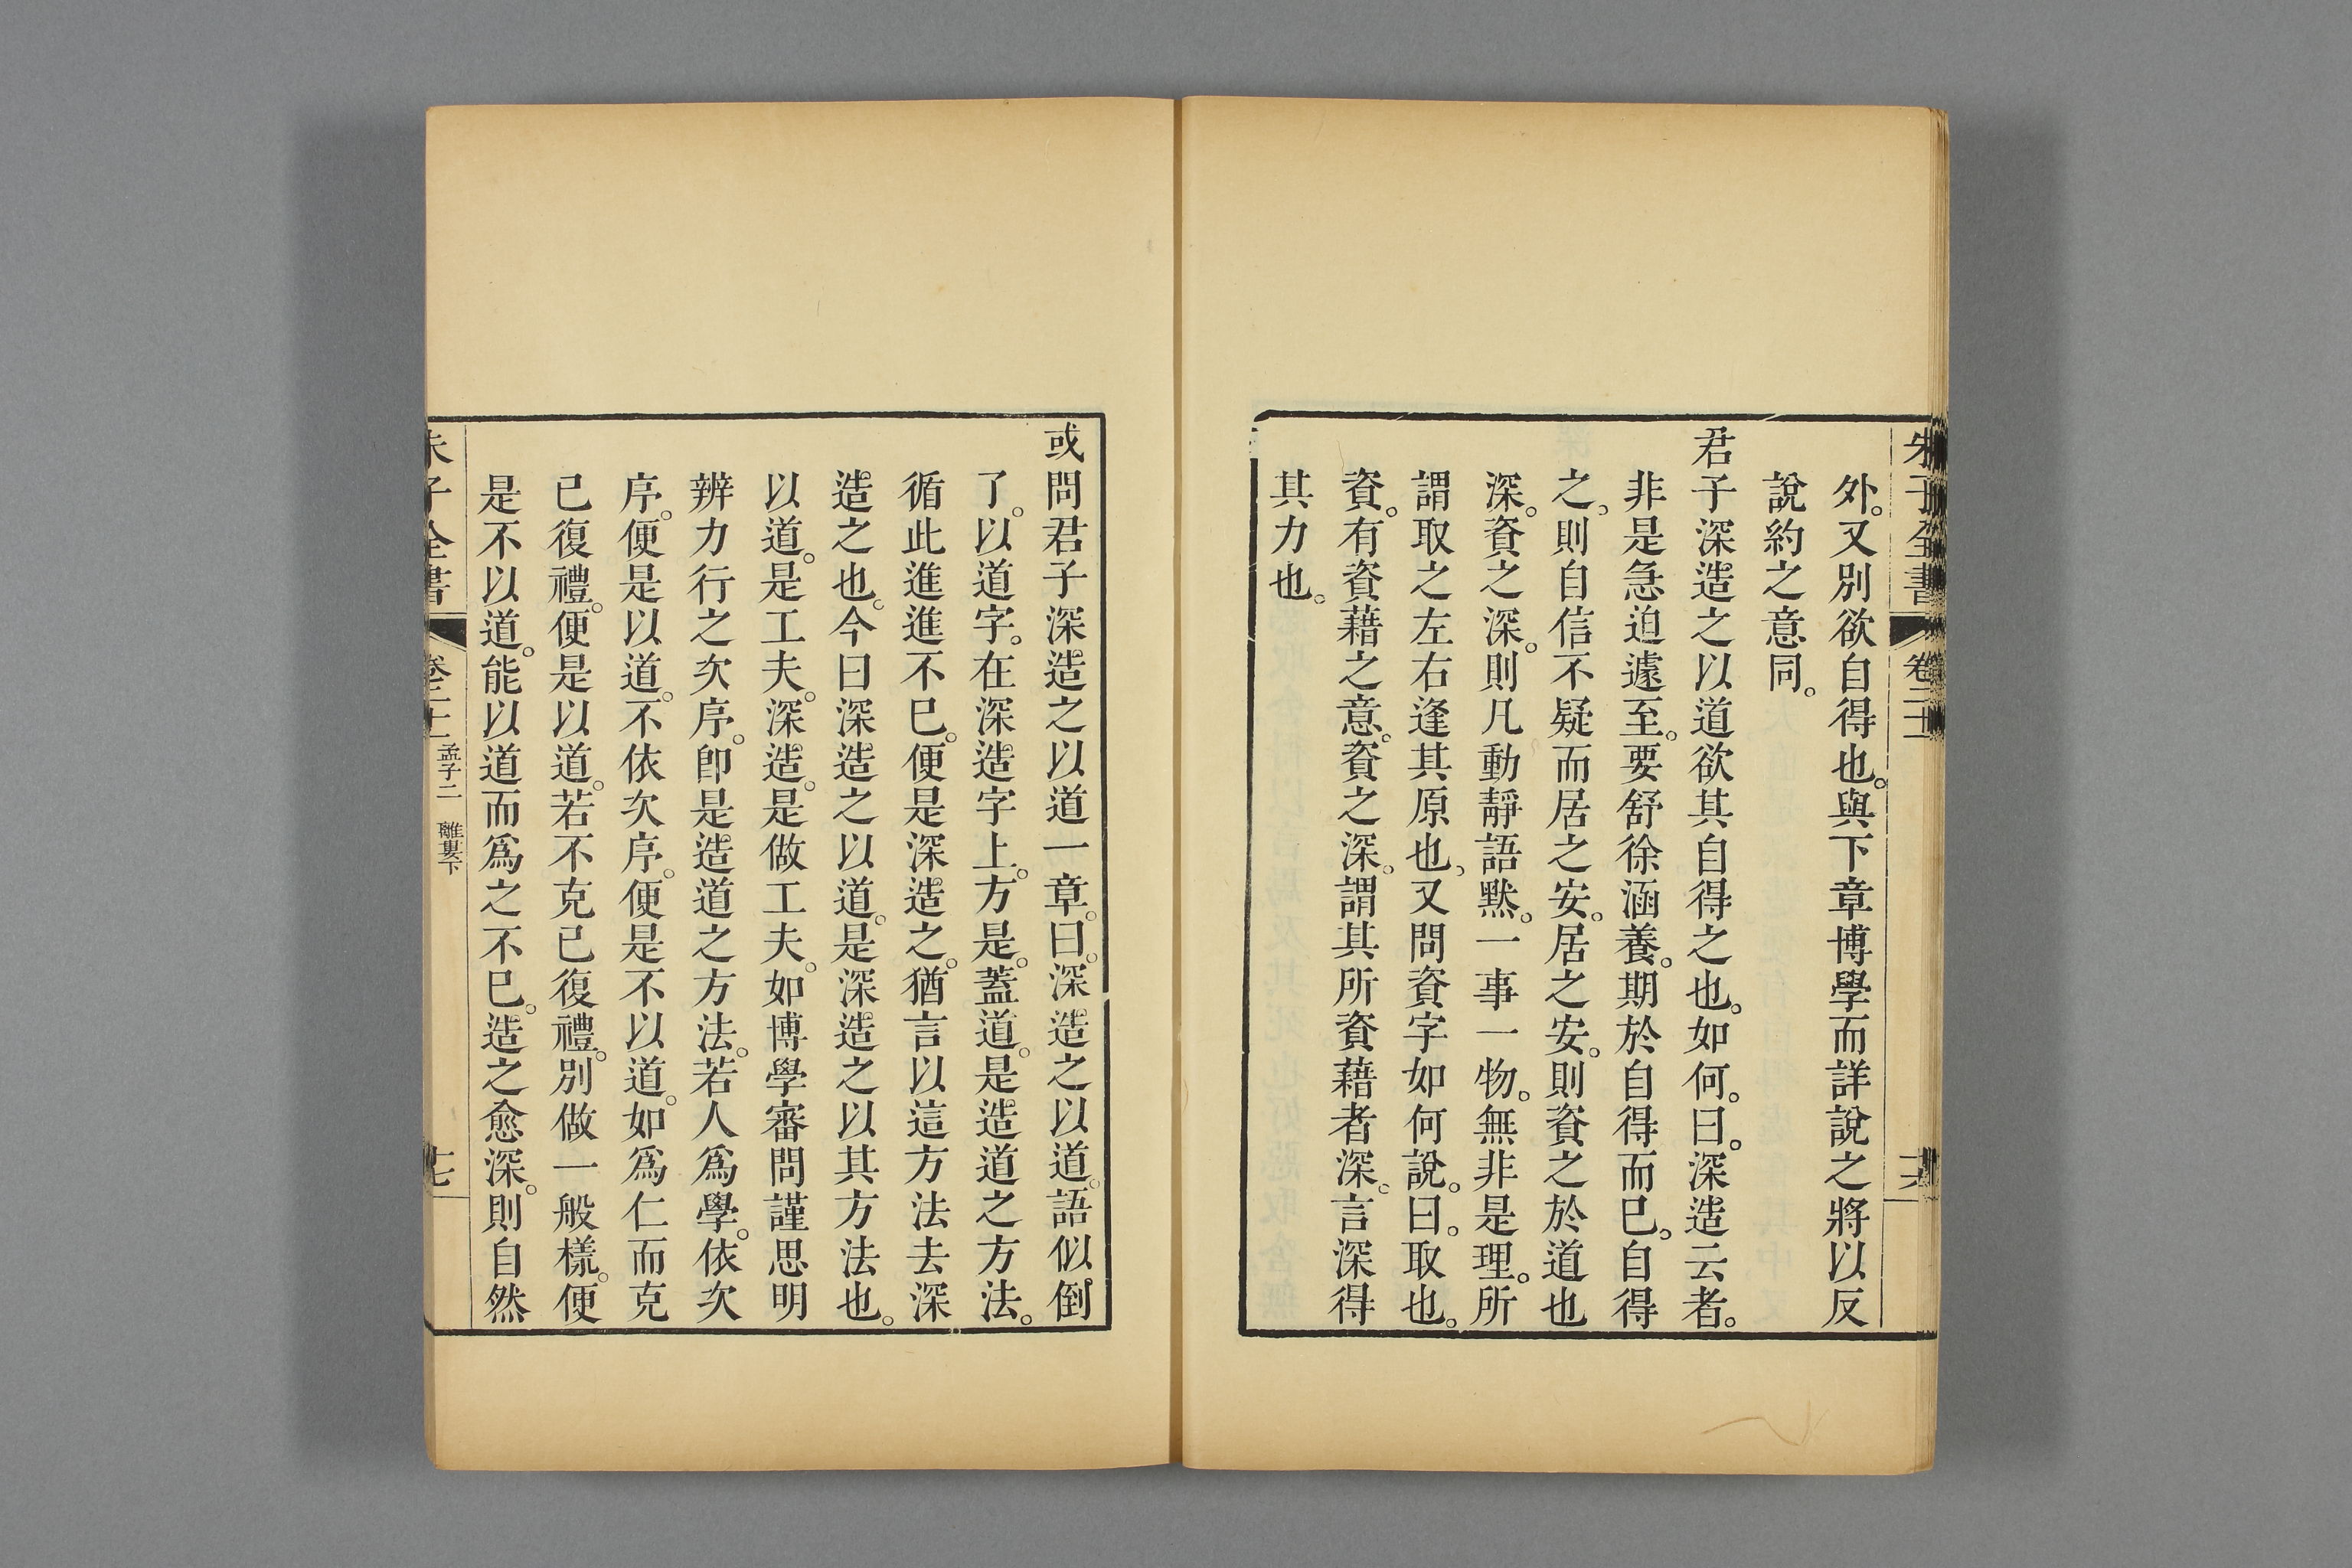 朱子全書 卷二十二 十六
外。又別欲自得也。與下章博學而詳說之將以反
說約之意同。
君子深造之以道欲其自得之也。如何。曰。深造云者。
非是急迫遽至。要舒徐涵養。期於自得而已。自得
之。則自信不疑而居之安。居之安。則資之於道也
深。資之深。則凡動靜語默。一事一物。無非是理。所
謂取之左右逢其原也。又問資字如何說。曰。取也。
資。有資藉之意。資之深。謂其所資藉者深。言深得
其力也。
或問君子深造之以道一章。曰。深造之以道。語似倒
了。以道字。在深造字上。方是。蓋道。是造道之方法。
循此進進不已。便是深造之。猶言以這方法去深
造之也。今曰深造之以道。是深造之以其方法也。
以道。是工夫。深造。是做工夫。如博學審問謹思明
辨力行之次序。卽是造道之方法。若人爲學。依次
序。便是以道。不依次序。便是不以道。如爲仁而克
己復禮。便是以道。若不克己復禮。別做一般樣。便
是不以道。能以道而爲之不已。造之愈深。則自然
朱子全書 卷二十二 孟子二 離婁下 十七